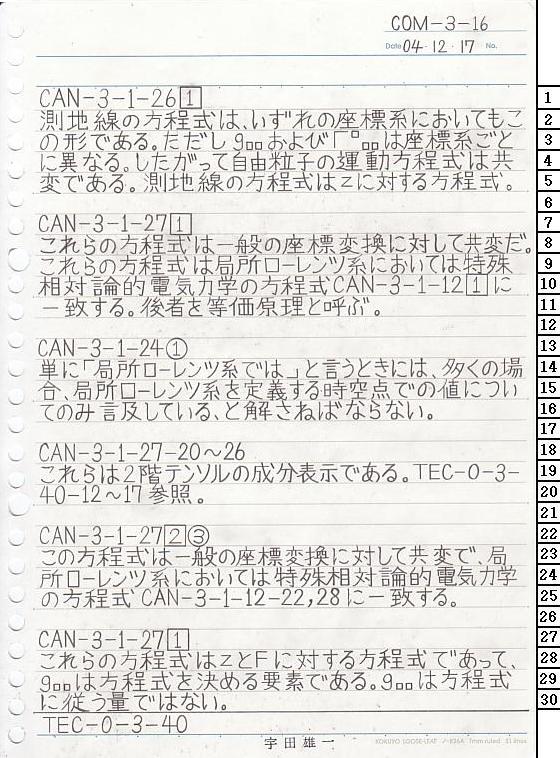 COM-3-16
Date 04・12・17 No.
CAN-3-1-26[1]
測地線の方程式は、いずれの座標系においてもこ
の形である。ただし g□□および Γ□□□は座標系ごと
に異なる。したがって自由粒子の運動方程式は共
変である。測地線の方程式はzに対する方程式。
CAN-3-1-27[1]
これらの方程式は一般の座標変換に対して共変だ。
これらの方程式は局所ローレンツ系においては特殊
相対論的電気力学の方程式CAN-3-1-12[1]に
一致する。後者を等価原理と呼ぶ。
CAN-3-1-24①
単に「局所ローレンツ系では」と言うときには、多くの場
合、局所ローレンツ系を定義する時空点での値につい
てのみ言及している、と解さねばならない。
CAN-3-1-27-20〜26
これらは2階テンソルの成分表示である。TEC-0-3-
40-12〜17参照。
CAN-3-1-27[2]③
この方程式は一般の座標変換に対して共変で、局
所ローレンツ系においては特殊相対論的電気力学
の方程式 CAN-3-1-12-22,28に一致する。
CAN-3-1-27[1]
これらの方程式はzとFに対する方程式であって、
g□□は方程式を決める要素である。g□□は方程式
に従う量ではない。
TEC-0-3-40
宇田雄一
KOKUYO LOOSE-LEAF ノ-836A 7mm ruled 31 lines
1
2
3
4
5
6
7
8
9
10
11
12
13
14
15
16
17
18
19
20
21
22
23
24
25
26
27
28
29
30